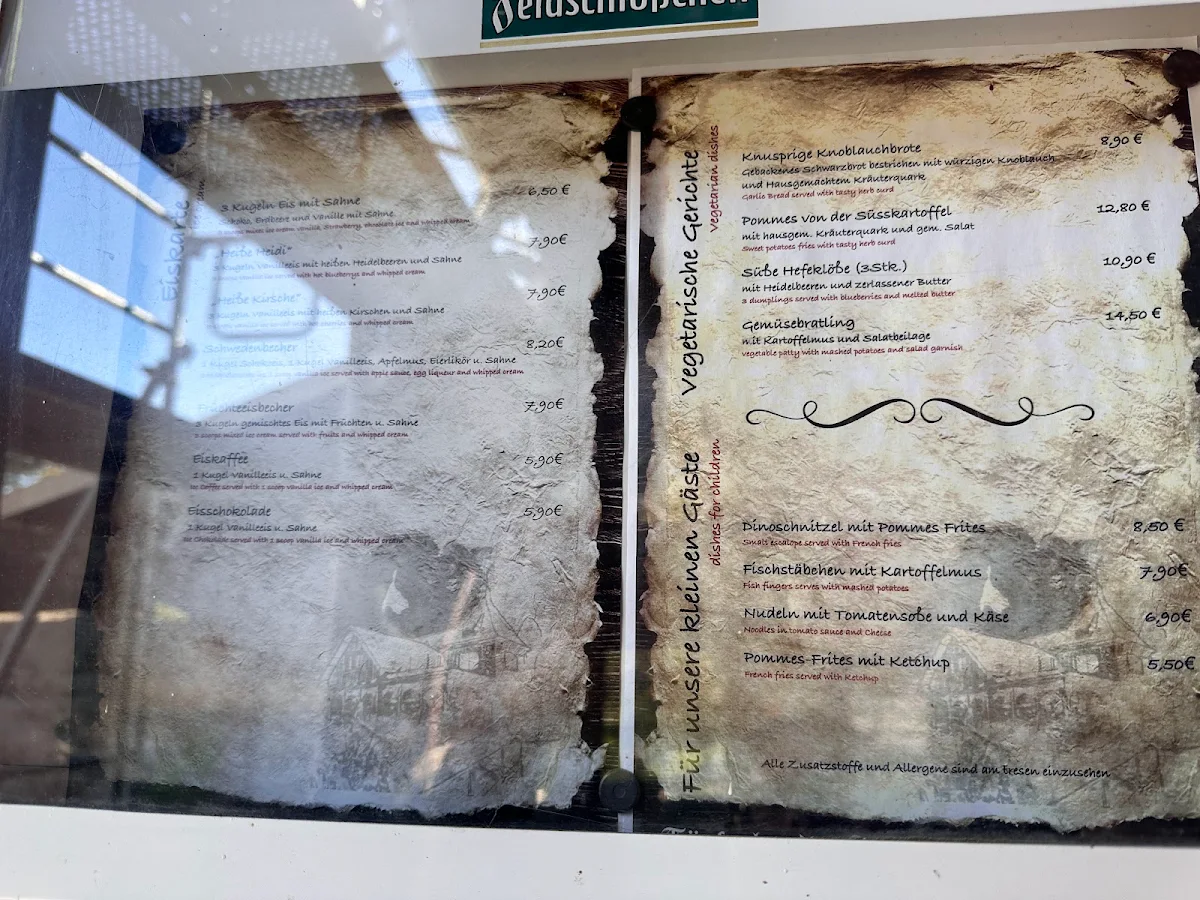 Feldschlößchen
Eiskarte
3 Kugeln Eis mit Sahne 6,50 €
Erdbeere und Vanille mit Sahne
"Heiße Heidi" 7,90€
3 Kugeln Vanilleeis mit heißen Heidelbeeren und Sahne
served with hot blueberrys and whipped cream
"Heiße Kirsche" 7,90€
3 Kugeln Vanilleeis mit heißen Kirschen und Sahne
and whipped cream
Schwedenbecher 8,20€
1 Kugel Vanilleeis, Apfelmus, Eierlikör u. Sahne
ice served with apple sauce, egg liqueur and whipped cream
Früchteeisbecher 7,90€
3 Kugeln gemischtes Eis mit Früchten u. Sahne
3 scoops mixed ice cream served with fruits and whipped cream
Eiskaffee 5,90€
1 Kugel Vanilleeis u. Sahne
Ice Coffee served with 1 scoop vanilla ice and whipped cream
Eisschokolade 5,90€
1 Kugel Vanilleeis u. Sahne
Ice Chokolade served with 1 scoop vanilla ice and whipped cream
Vegetarische Gerichte
vegetarian dishes
Knusprige Knoblauchbrote 8,90 €
Gebackenes Schwarzbrot bestrichen mit würzigen Knoblauch
und Hausgemachtem Kräuterquark
Garlic Bread served with tasty herb curd
Pommes von der Süsskartoffel 12,80 €
mit hausgem. Kräuterquark und gem. Salat
Sweet potatoes fries with tasty herb curd
Süße Hefeklöße (3Stk.) 10,90 €
mit Heidelbeeren und zerlassener Butter
3 dumplings served with blueberries and melted butter
Gemüsebratling 14,50 €
mit Kartoffelmus und Salatbeilage
vegetable patty with mashed potatoes and salad garnish
Für unsere kleinen Gäste
dishes for children
Dinoschnitzel mit Pommes Frites 8,50 €
Small escalope served with French fries
Fischstäbchen mit Kartoffelmus 7,90€
Fish fingers serves with mashed potatoes
Nudeln mit Tomatensoße und Käse 6,90€
Noodles in tomato sauce and Cheese
Pommes-Frites mit Ketchup 5,50€
French fries served with Ketchup
Alle Zusatzstoffe und Allergene sind am Tresen einzusehen